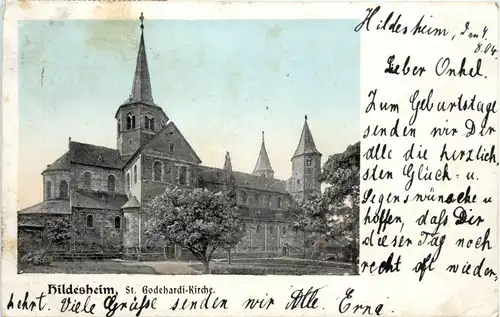 Hildesheim, d. 4.
8.04.
Lieber Onkel.
Zum Geburtstage
senden wir Dir
alle die herzlich-
sten Glück- u.
Segenswünsche u
hoffen, daß Dir
dieser Tag noch
recht oft wieder,
Hildesheim, St. Godehardi-Kirche.
kehrt. Viele Grüsse senden wir Alle. Erna.